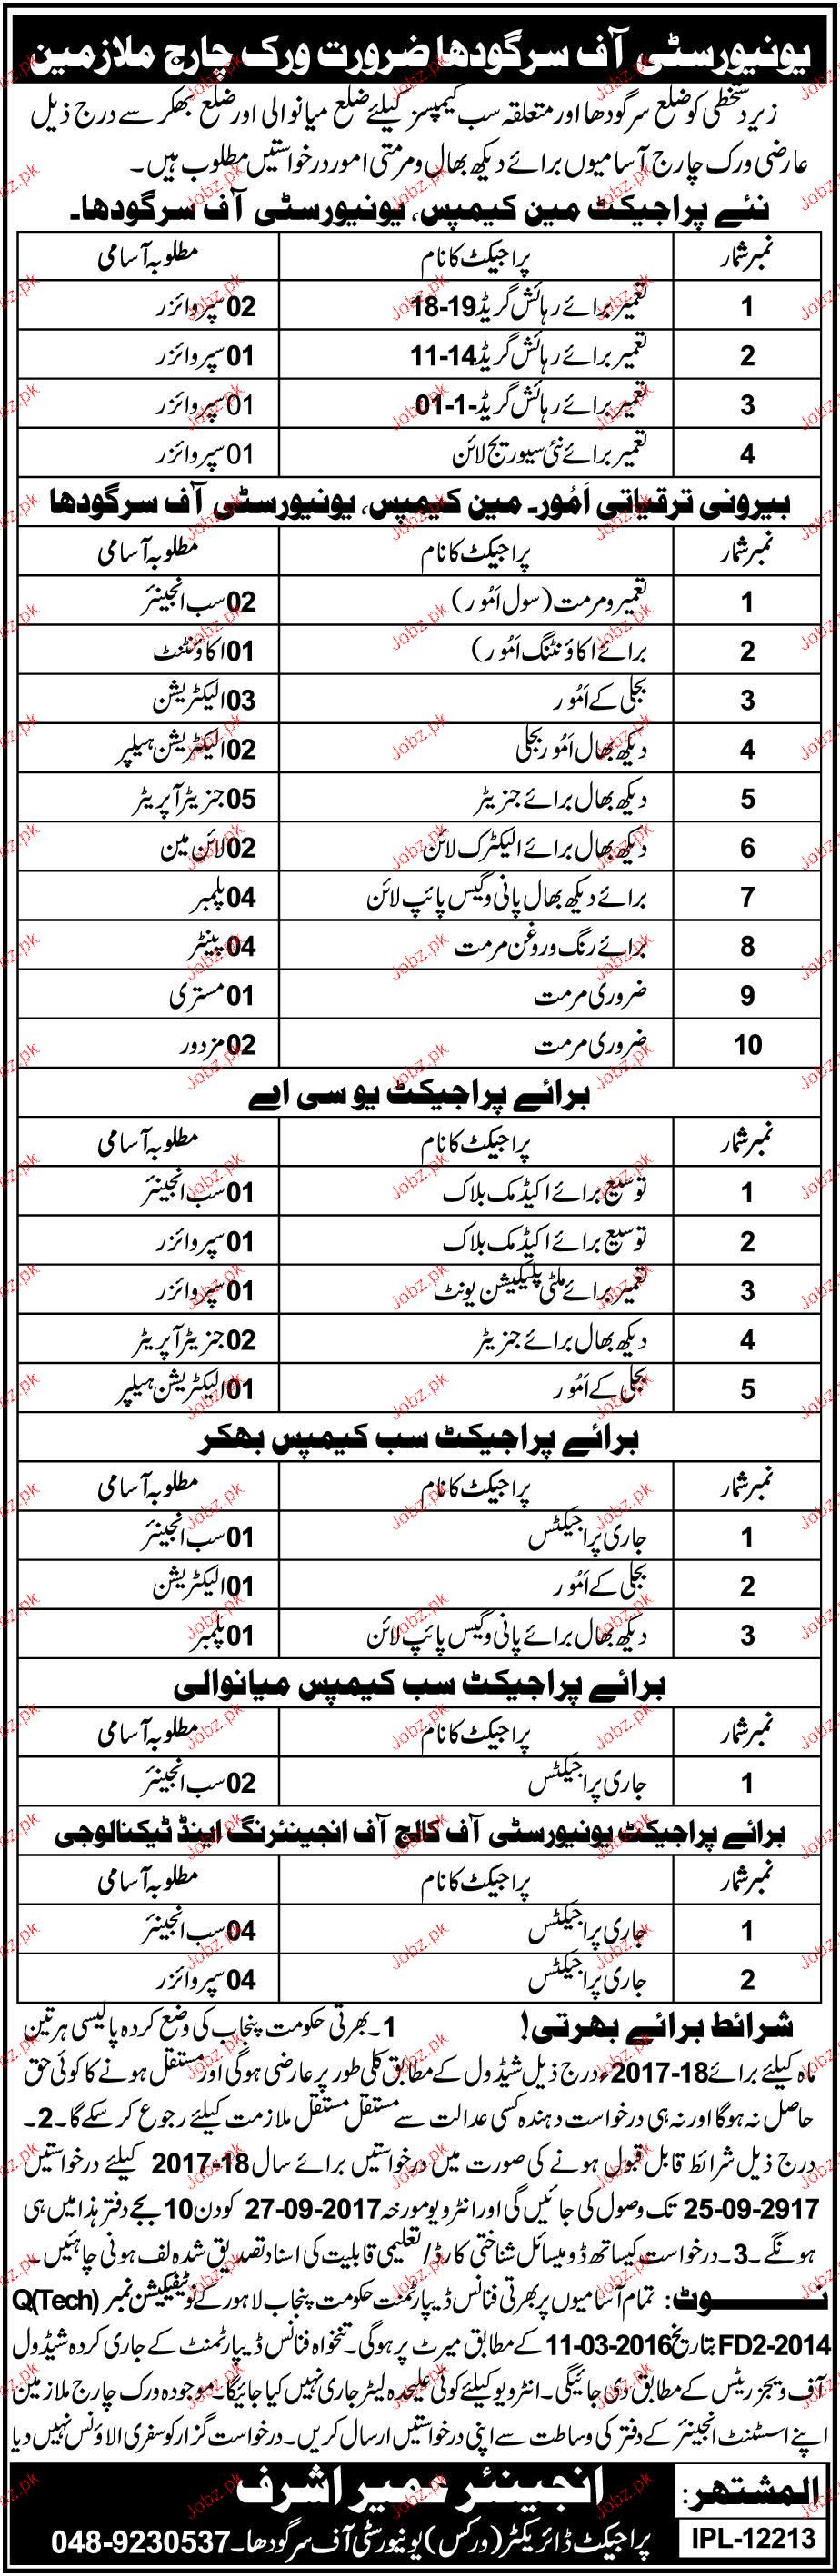 یونیورسٹی آف سرگودھا ضرورت ورک چارج ملازمین
زیر دستخطی کو ضلع سرگودھا اور متعلقہ سب کیمپسز کیلئے ضلع میانوالی اور ضلع بھکر سے درج ذیل
عارضی ورک چارج آسامیوں برائے دیکھ بھال و مرمتی امور درخواستیں مطلوب ہیں۔
نئے پراجیکٹ مین کیمپس، یونیورسٹی آف سرگودھا۔
نمبر شمار پراجیکٹ کا نام مطلوبہ آسامی
1 تعمیر برائے رہائش گریڈ 19-18 02 سپروائزر
2 تعمیر برائے رہائش گریڈ 14-11 01 سپروائزر
3 تعمیر برائے رہائش گریڈ 1-01- 01 سپروائزر
4 تعمیر برائے نئی سیوریج لائن 01 سپروائزر
بیرونی ترقیاتی اَمُور۔ مین کیمپس، یونیورسٹی آف سرگودھا
نمبر شمار پراجیکٹ کا نام مطلوبہ آسامی
1 تعمیر و مرمت (سول اَمُور) 02 سب انجینئر
2 برائے اکاؤنٹنگ اَمُور) 01 اکاؤنٹنٹ
3 بجلی کے اَمُور 03 الیکٹریشن
4 دیکھ بھال اَمُور بجلی 02 الیکٹریشن ہیلپر
5 دیکھ بھال برائے جنریٹر 05 جنریٹر آپریٹر
6 دیکھ بھال برائے الیکٹرک لائن 02 لائن مین
7 برائے دیکھ بھال پانی و گیس پائپ لائن 04 پلمبر
8 برائے رنگ و روغن مرمت 04 پینٹر
9 ضروری مرمت 01 مستری
10 ضروری مرمت 02 مزدور
برائے پراجیکٹ یو سی اے
نمبر شمار پراجیکٹ کا نام مطلوبہ آسامی
1 توسیع برائے اکیڈمک بلاک 01 سب انجینئر
2 توسیع برائے اکیڈمک بلاک 01 سپروائزر
3 تعمیر برائے ملٹی پلیکیشن یونٹ 01 سپروائزر
4 دیکھ بھال برائے جنریٹر 02 جنریٹر آپریٹر
5 بجلی کے اَمُور 01 الیکٹریشن ہیلپر
برائے پراجیکٹ سب کیمپس بھکر
نمبر شمار پراجیکٹ کا نام مطلوبہ آسامی
1 جاری پراجیکٹس 01 سب انجینئر
2 بجلی کے اَمُور 01 الیکٹریشن
3 دیکھ بھال برائے پانی و گیس پائپ لائن 01 پلمبر
برائے پراجیکٹ سب کیمپس میانوالی
نمبر شمار پراجیکٹ کا نام مطلوبہ آسامی
1 جاری پراجیکٹس 02 سب انجینئر
برائے پراجیکٹ یونیورسٹی آف کالج آف انجینئرنگ اینڈ ٹیکنالوجی
نمبر شمار پراجیکٹ کا نام مطلوبہ آسامی
1 جاری پراجیکٹس 04 سب انجینئر
2 جاری پراجیکٹس 04 سپروائزر
شرائط برائے بھرتی! 1۔ بھرتی حکومت پنجاب کی وضع کردہ پالیسی ہر تین
ماہ کیلئے برائے 18-2017ء درج ذیل شیڈول کے مطابق کلی طور پر عارضی ہوگی اور مستقل ہونے کا کوئی حق
حاصل نہ ہوگا اور نہ ہی درخواست دہندہ کسی عدالت سے مستقل مستقل ملازمت کیلئے رجوع کر سکے گا۔ 2۔
درج ذیل شرائط قابل قبول ہونے کی صورت میں درخواستیں برائے سال 18-2017 کیلئے درخواستیں
25-09-2917 تک وصول کی جائیں گی اور انٹرویو مورخہ 27-09-2017 کو دن 10 بجے دفتر ہذا میں ہی
ہونگے۔ 3۔ درخواست کیساتھ ڈومیسائل شناختی کارڈ/تعلیمی قابلیت کی اسناد تصدیق شدہ لف ہونی چاہئیں۔
نوٹ: تمام آسامیوں پر بھرتی فنانس ڈیپارٹمنٹ حکومت پنجاب لاہور کے نوٹیفکیشن نمبر Q(Tech)
FD2-2014 بتاریخ 11-03-2016 کے مطابق میرٹ پر ہوگی۔ تنخواہ فنانس ڈیپارٹمنٹ کے جاری کردہ شیڈول
آف ویجز ریٹس کے مطابق دی جائیگی۔ انٹرویو کیلئے کوئی علیحدہ لیٹر جاری نہیں کیا جائیگا۔ موجودہ ورک چارج ملازمین
اپنے اسسٹنٹ انجینئر کے دفتر کی وساطت سے اپنی درخواستیں ارسال کریں۔ درخواست گزار کو سفری الاؤنس نہیں دیا
المشتہر: انجینئر عمیر اشرف
پراجیکٹ ڈائریکٹر (ورکس) یونیورسٹی آف سرگودھا۔ 048-9230537
IPL-12213